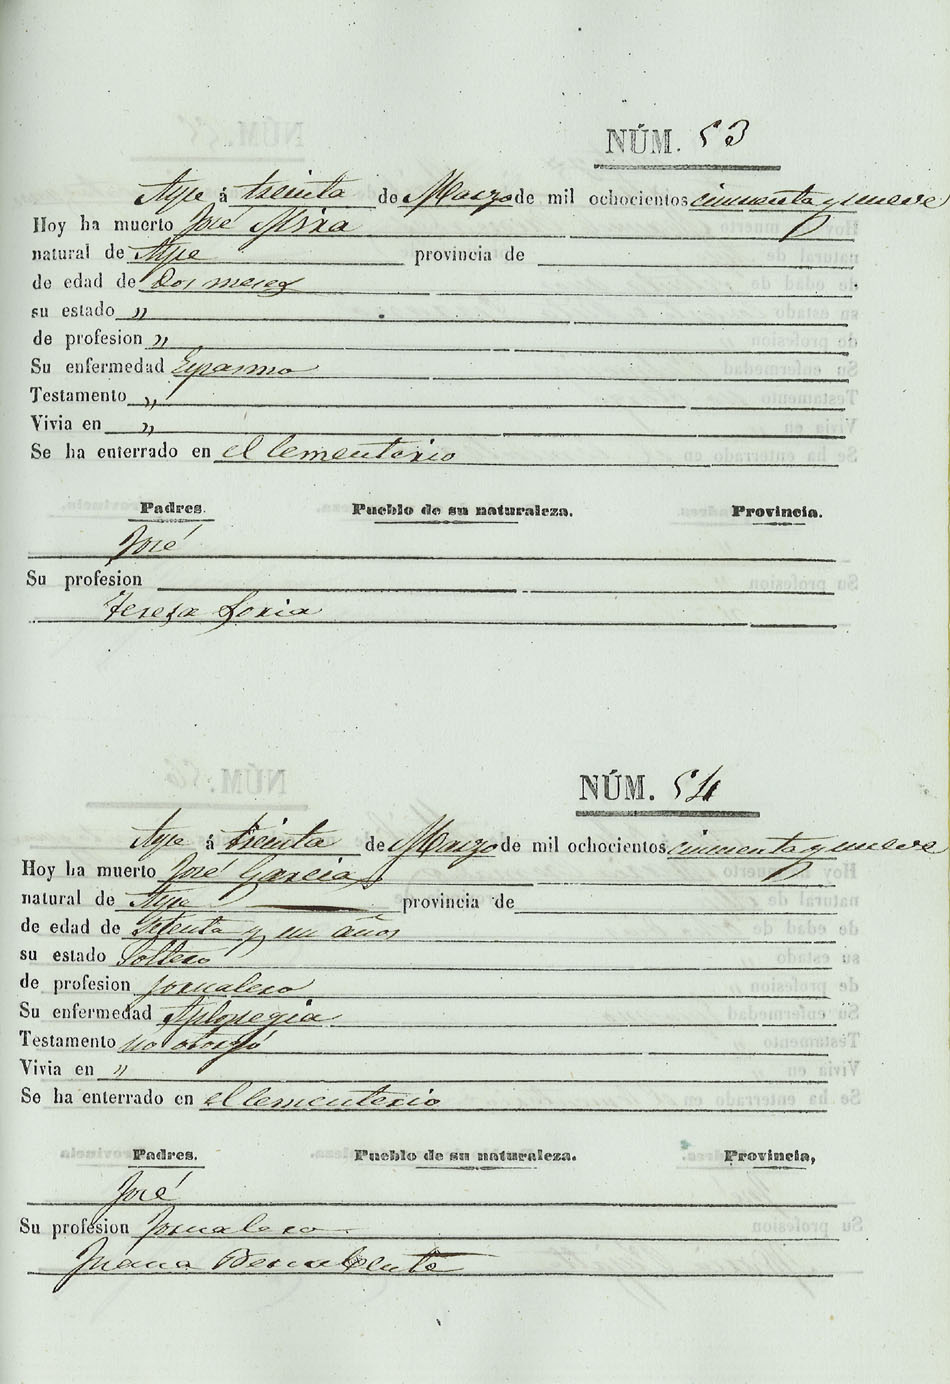 NÚM. 53
Aspe á treinta de Marzo de mil ochocientos cincuenta y nueve
Hoy ha muerto José Mira
natural de Aspe provincia de
de edad de Dos meses
su estado "
de profesion "
Su enfermedad Espasmo
Testamento "
Vivia en "
Se ha enterrado en el Cementerio
Padres. Pueblo de su naturaleza. Provincia.
José
Su profesion
Teresa Soria
NÚM. 54
Aspe á treinta de Marzo de mil ochocientos cincuenta y nueve
Hoy ha muerto José Garcia
natural de Aspe provincia de
de edad de Setenta y un años
su estado Soltero
de profesion jornalero
Su enfermedad Aplopegia
Testamento no otorgó
Vivia en "
Se ha enterrado en el Cementerio
Padres. Pueblo de su naturaleza. Provincia,
José
Su profesion Jornalero
Juana